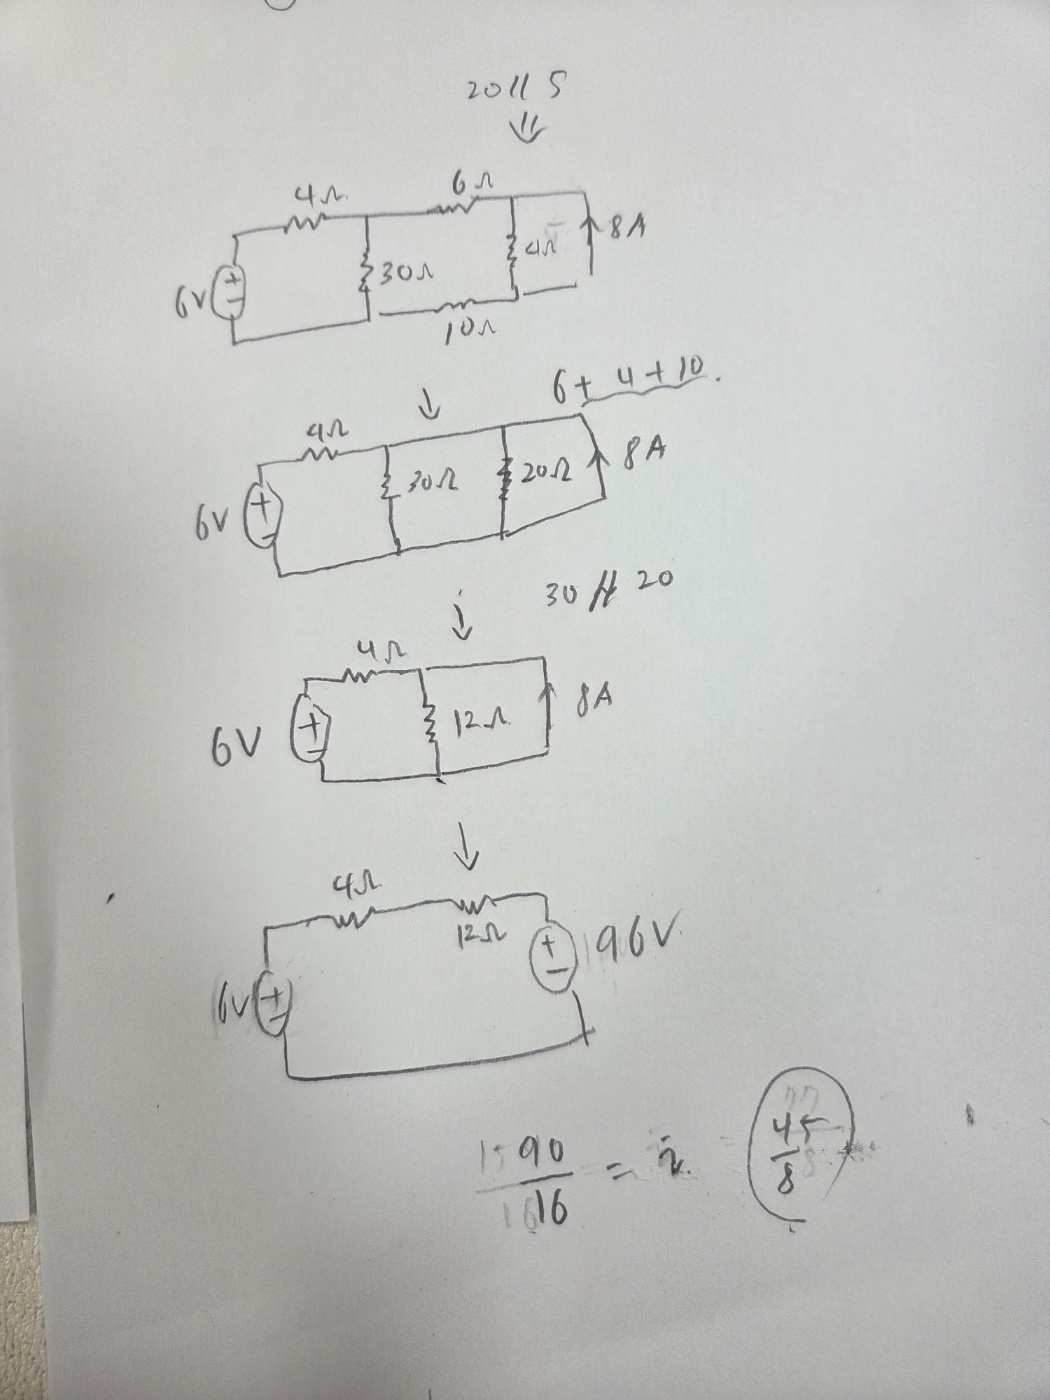 20 // 5
4Ω 6Ω
6V + - 30Ω 4Ω 8A
10Ω
6 + 4 + 10.
4Ω
6V + - 30Ω 20Ω 8A
30 // 20
4Ω
6V + - 12Ω 8A
4Ω
12Ω
6V + - + - 96V
90/16 = i 45/8